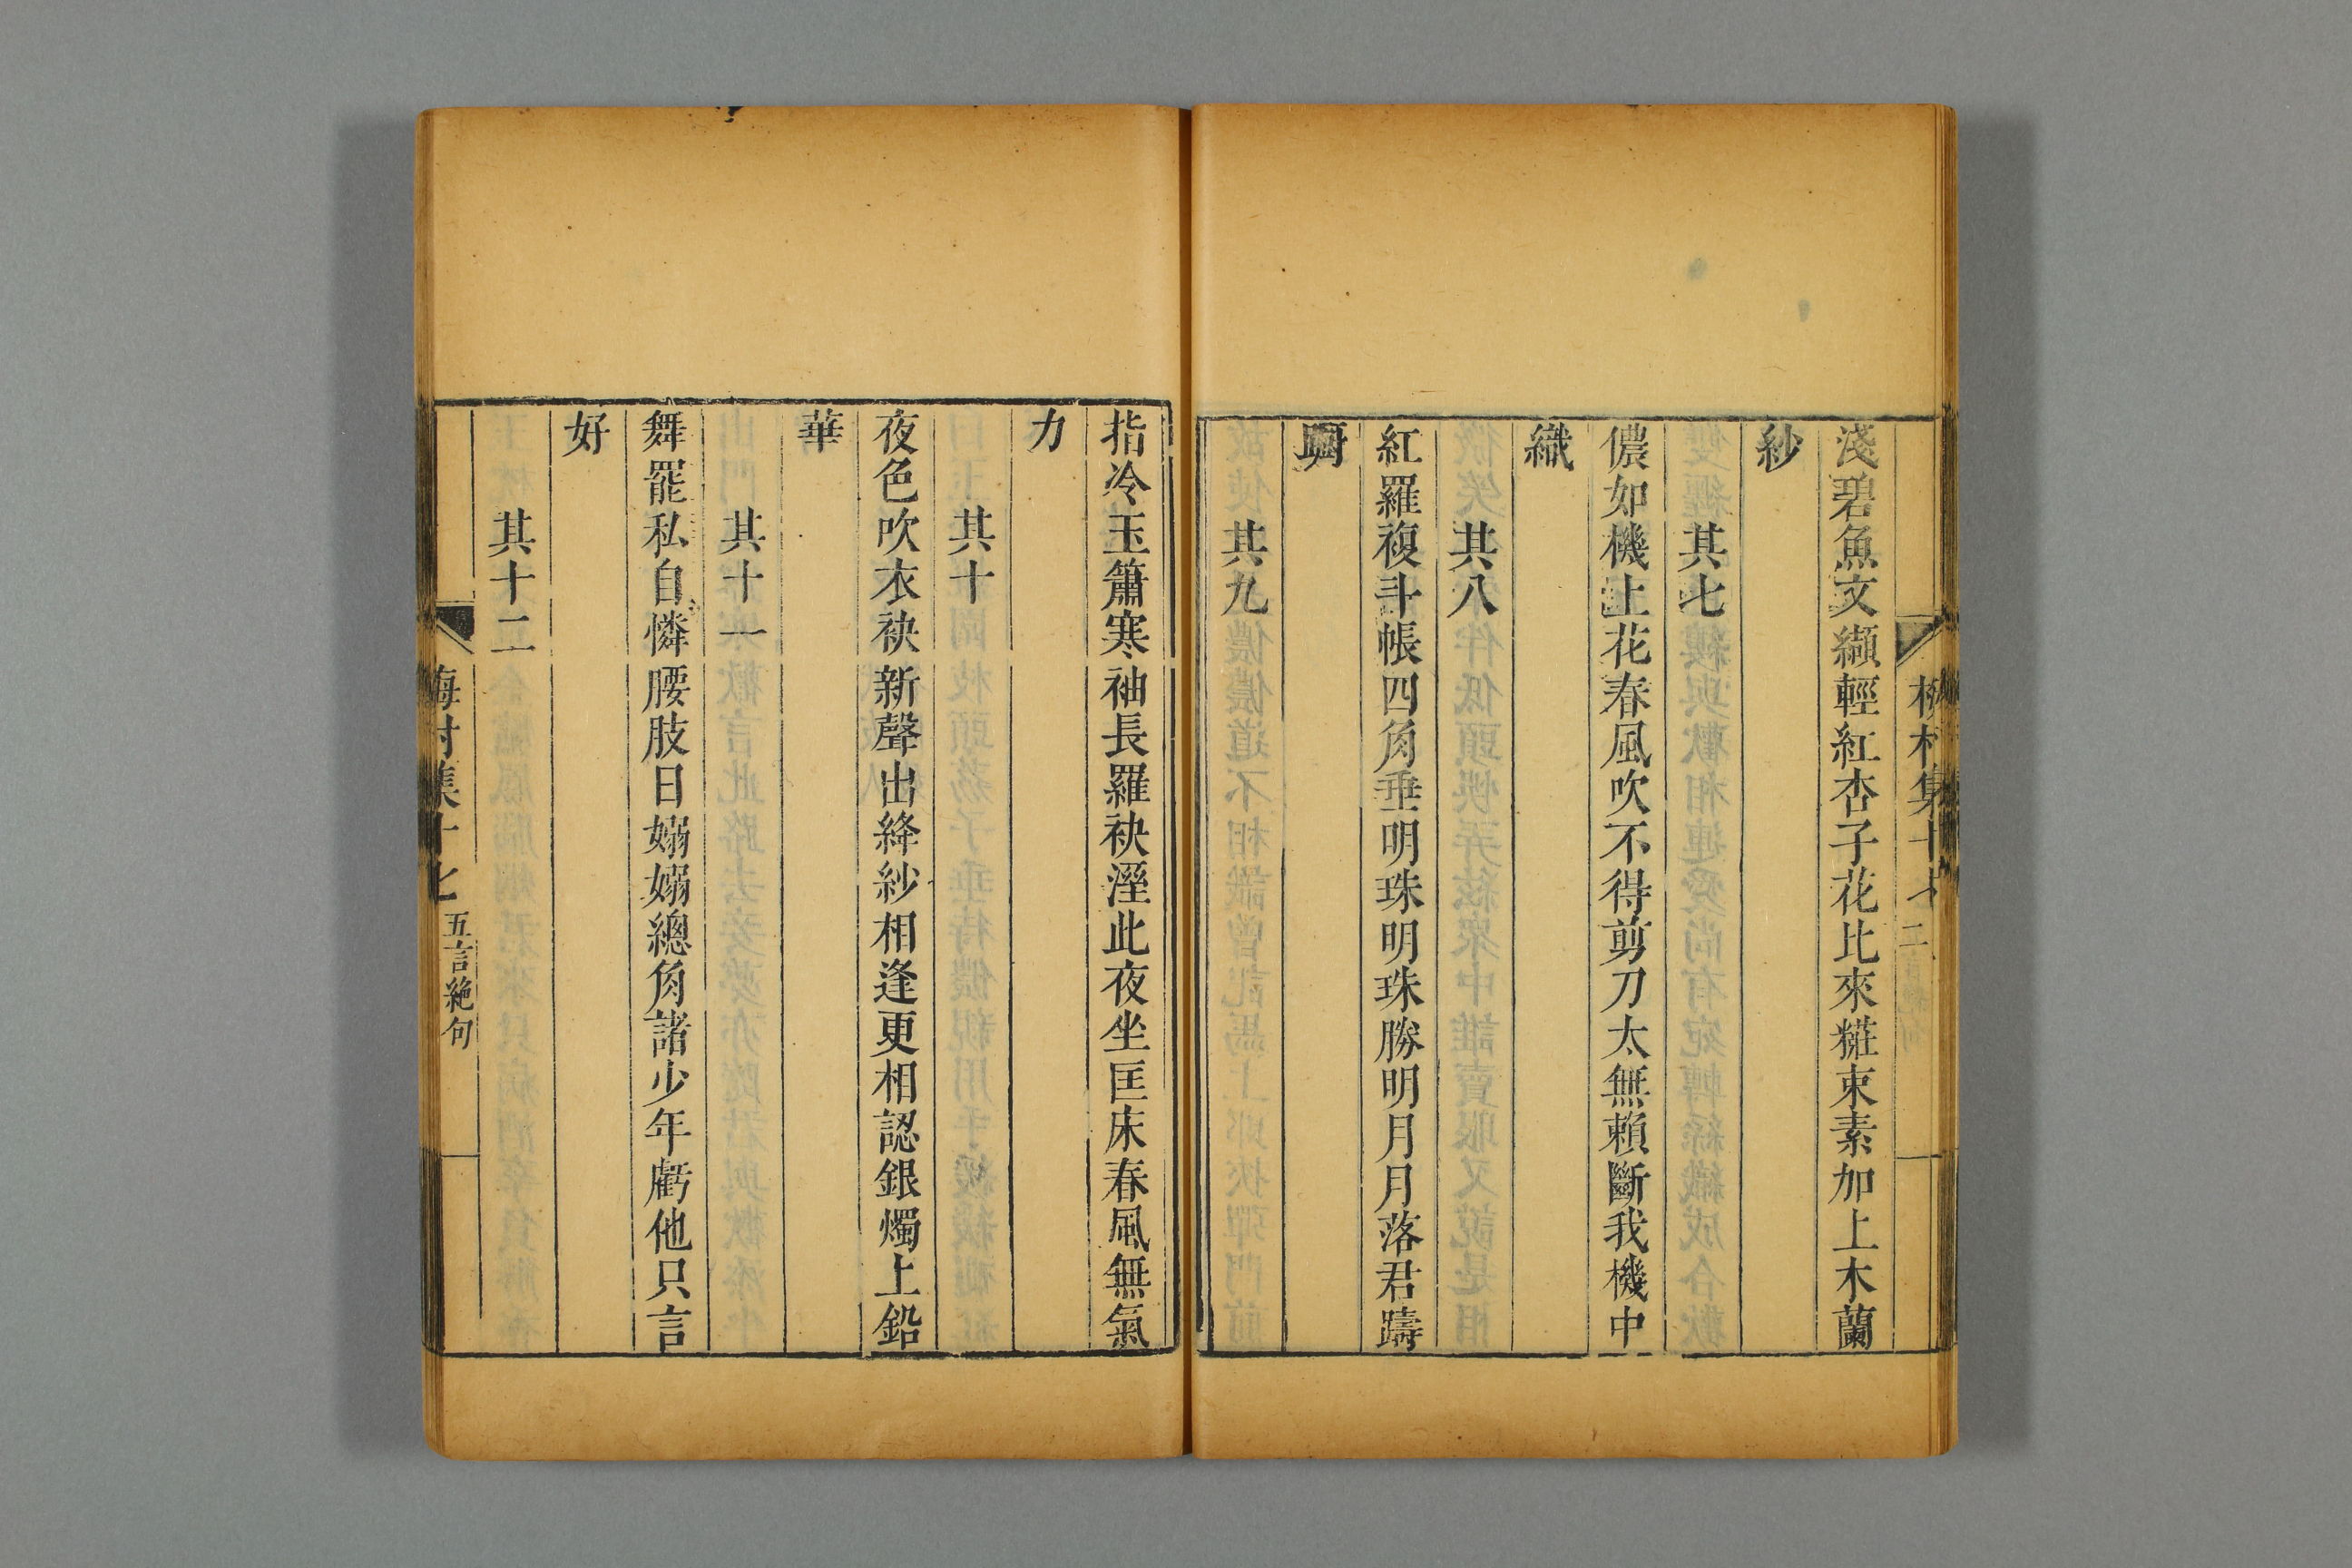 淺碧魚文纈輕紅杏子花比來糚束素加上木蘭
紗
其七
儂如機上花春風吹不得剪刀太無賴斷我機中
織
其八
紅羅複斗帳四角垂明珠明珠勝明月月落君躊
躕
其九
指冷玉簫寒袖長羅袂溼此夜坐匡床春風無氣
力
其十
夜色吹衣袂新聲出絳紗相逢更相認銀燭上鉛
華
其十一
舞罷私自憐腰肢日嫋嫋總角諸少年虧他只言
好
其十二
梅村集十七 五言絶句